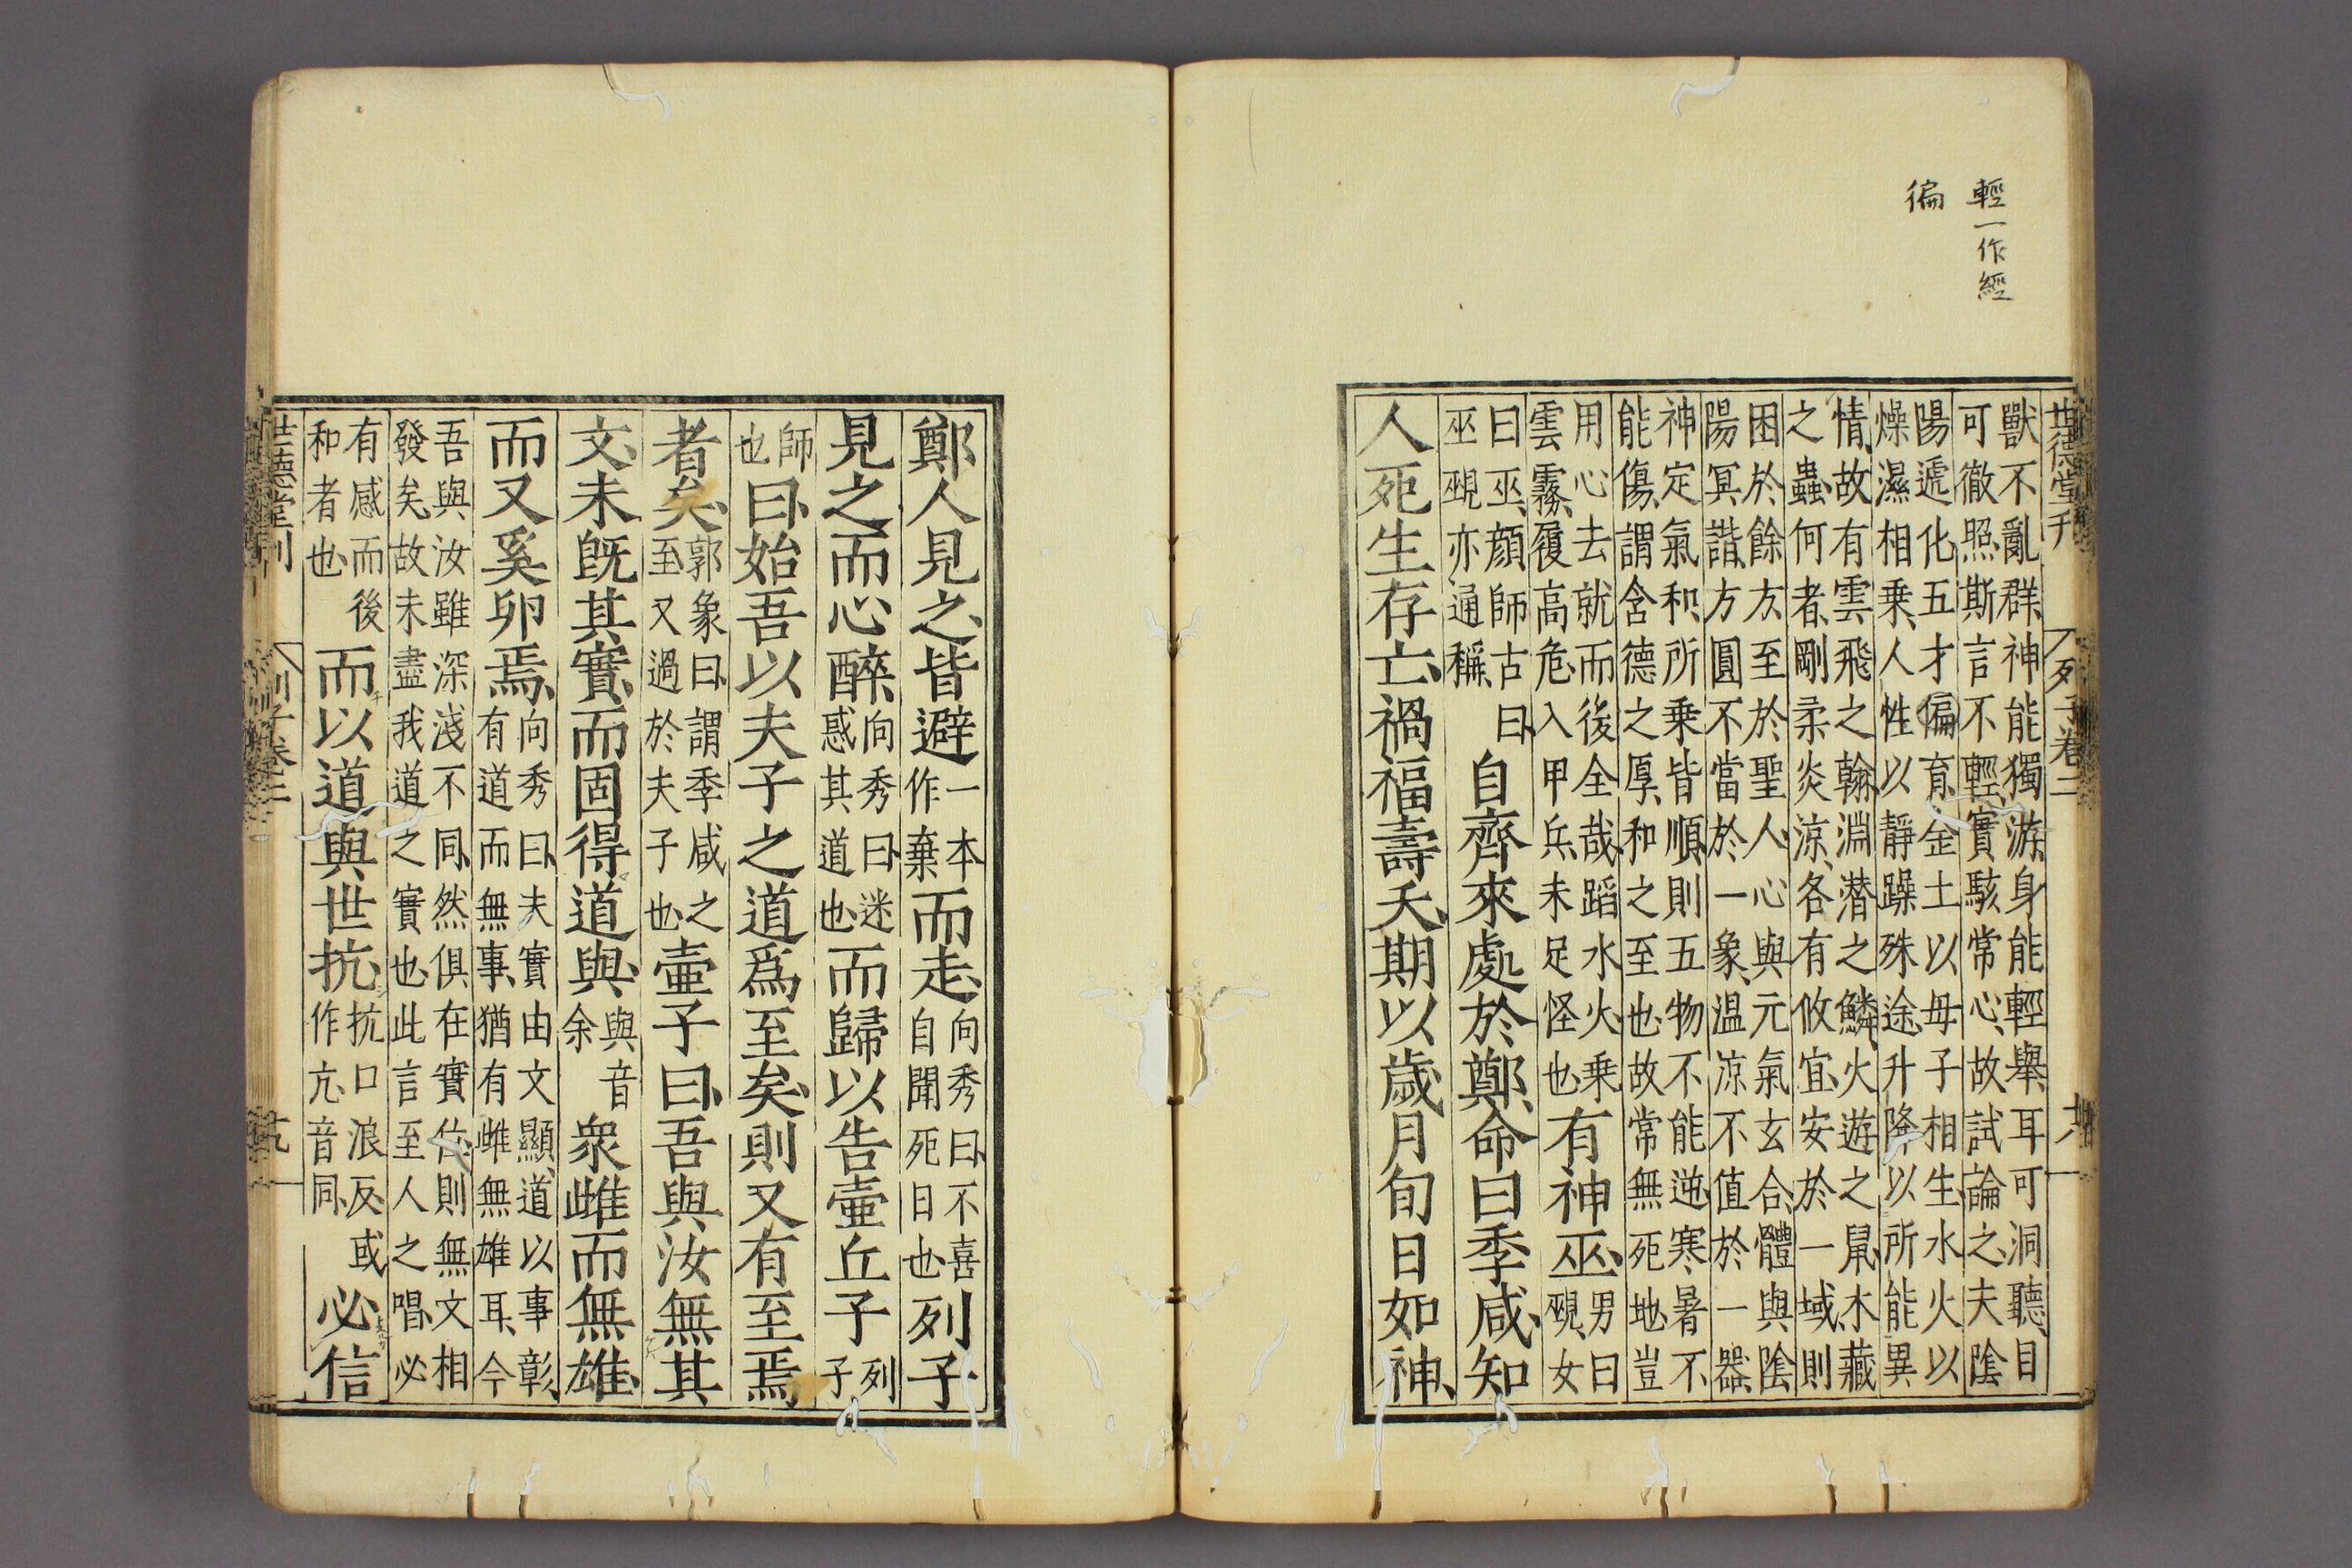 輕一作經
徧
世德堂刊
列子卷二
十八
獸不亂群神能獨游身能輕舉耳可洞聽目
可徹照斯言不輕實駭常心故試論之夫陰
陽遞化五才偏育金土以母子相生水火以
燥濕相乗人性以靜躁殊途升降以所能異
情故有雲飛之翰淵潜之鱗火遊之鼠木藏
之蟲何者剛柔炎涼各有攸宜安於一域則
困於餘方至於聖人心與元氣玄合體與陰
陽冥諧方圓不當於一象温涼不值於一器
神定氣和所乗皆順則五物不能逆寒暑不
能傷謂含德之厚和之至也故常無死地豈
用心去就而後全哉蹈水火乗
雲霧履高危入甲兵未足怪也
有神巫
男曰
覡女
曰巫顔師古曰
巫覡亦通稱
自齊來處於鄭命曰季咸知
人死生存亡禍福壽夭期以歲月旬日如神
鄭人見之皆避
一本
作棄
而走
向秀曰不喜
自聞死日也
列子
見之而心醉
向秀曰迷
惑其道也
而歸以告壷丘子
列
子
師
也
曰始吾以夫子之道爲至矣則又有至焉
者矣
郭象曰謂季咸之
至又過於夫子也
壷子曰吾與汝無其
文未既其實而固得道與
與音
余
衆雌而無雄
而又奚卵焉
向秀曰夫實由文顯道以事彰
有道而無事猶有雌無雄耳今
吾與汝雖深淺不同然俱在實位則無文相
發矣故未盡我道之實也此言至人之唱必
有感而後
和者也
而以道與世抗
抗口浪反或
作亢音同
必信
世德堂刊
列子卷二
十九